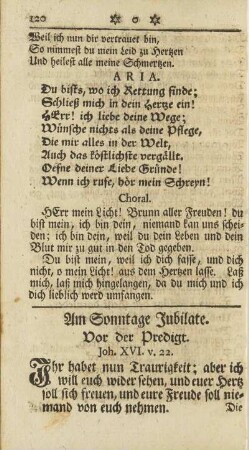 120
Weil ich nun dir vertrauet bin,
So nimmest du mein Leid zu Hertzen
Und heilest alle meine Schmertzen.
ARIA.
Du bists, wo ich Rettung finde;
Schließ mich in dein Hertze ein!
HErr! ich liebe deine Wege;
Wünsche nichts als deine Pflege,
Die mir alles in der Welt,
Auch das köstlichste vergällt.
Oefne deiner Liebe Gründe!
Wenn ich rufe, hör mein Schreyn!
Choral.
HErr mein Licht! Brunn aller Freuden! du
bist mein, ich bin dein, niemand kan uns schei-
den; ich bin dein, weil du dein Leben und dein
Blut mir zu gut in den Tod gegeben.
Du bist mein, weil ich dich fasse, und dich
nicht, o mein Licht! aus dem Hertzen lasse. Laß
mich, laß mich hingelangen, da du mich und ich
dich lieblich werd umfangen.
Am Sonntage Jubilate.
Vor der Predigt.
Joh. XVI. v. 22.
Ihr habet nun Traurigkeit; aber ich
will euch wider sehen, und euer Hertz
soll sich freuen, und eure Freude soll nie-
mand von euch nehmen.
Die